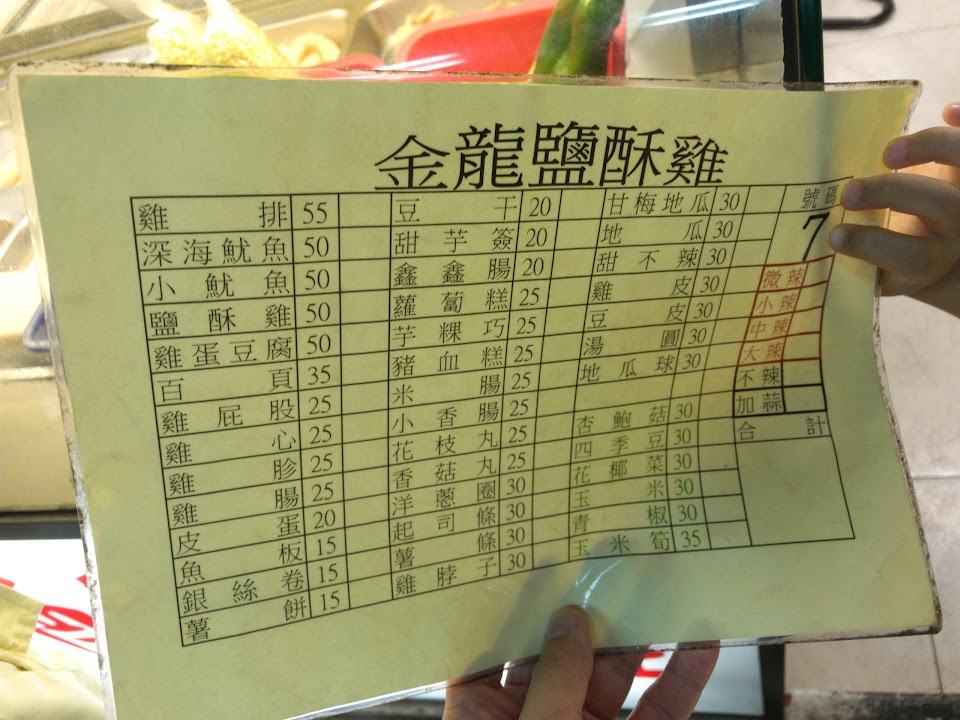 金龍鹽酥雞
雞排 55
深海魷魚 50
小魷魚 50
鹽酥雞 50
雞蛋豆腐 50
百頁 35
雞屁股 25
雞心 25
雞胗 25
雞腸 25
皮蛋 20
魚板 15
銀絲卷 15
薯餅 15
豆干 20
甜芋簽 20
鑫鑫腸 20
蘿蔔糕 25
芋粿巧 25
豬血糕 25
米腸 25
小香腸 25
花枝丸 25
香菇丸 25
洋蔥圈 30
起司條 30
薯條 30
雞脖子 30
甘梅地瓜 30
地瓜 30
甜不辣 30
雞皮 30
豆皮 30
湯圓 30
地瓜球 30
杏鮑菇 30
四季豆 30
花椰菜 30
玉米 30
青椒 30
玉米筍 35
號碼
7
微辣
小辣
中辣
大辣
不辣
加蒜
合計